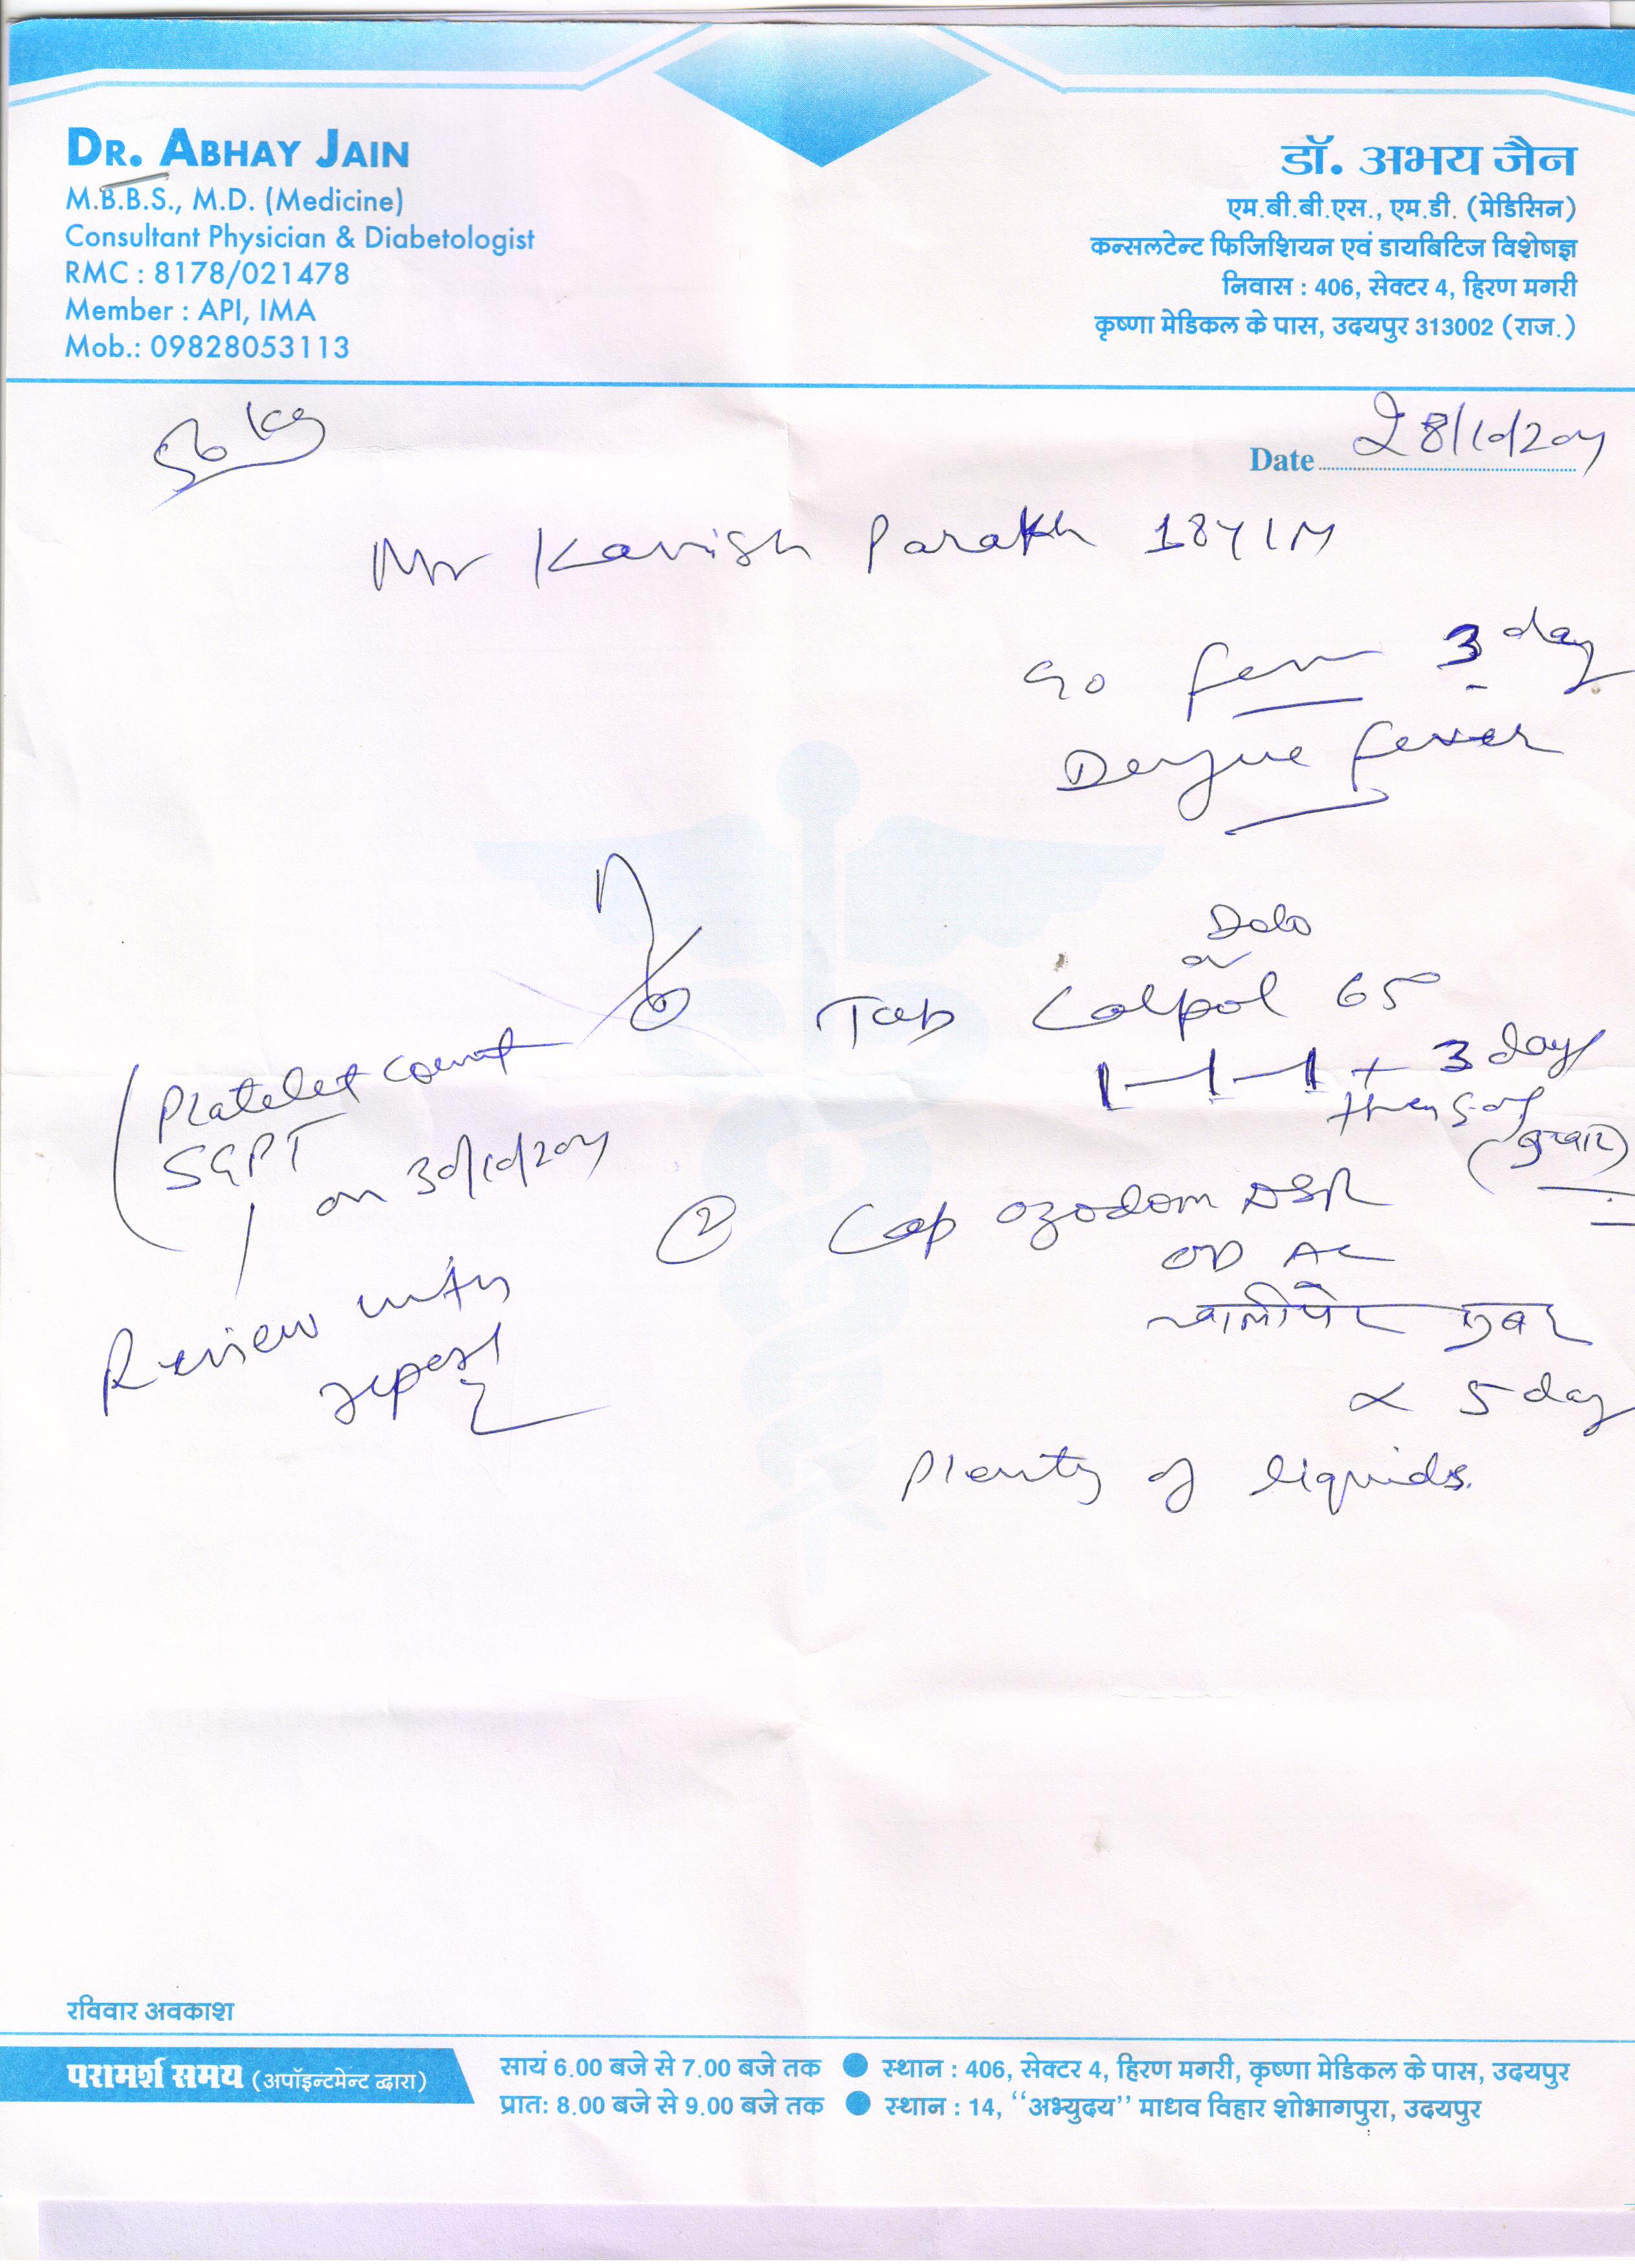 DR. ABHAY JAIN
M.B.B.S., M.D. (Medicine)
Consultant Physician & Diabetologist
RMC : 8178/021478
Member : API, IMA
Mob.: 09828053113
डॉ. अभय जैन
एम.बी.बी.एस., एम.डी. (मेडिसिन)
कन्सलटेन्ट फिजिशियन एवं डायबिटिज विशेषज्ञ
निवास : 406, सेक्टर 4, हिरण मगरी
कृष्णा मेडिकल के पास, उदयपुर 313002 (राज.)
kg
Date 28/10/204
Mr Kavish Parakh 18Y/M
fever 3 day
Dengue fever
Dolo
or
Tab Calpol 650
1-1-1 3 days
then SOS
(बुखार)
Platelet count
SGPT
on 30/10/204
Review with
report
② Cap Ozodom DSR
OD AC
खाली पेट सुबह
x 5 day
Plenty of liquids.
रविवार अवकाश
परामर्श समय (अपॉइन्टमेन्ट द्वारा)
सायं 6.00 बजे से 7.00 बजे तक ● स्थान : 406, सेक्टर 4, हिरण मगरी, कृष्णा मेडिकल के पास, उदयपुर
प्रात: 8.00 बजे से 9.00 बजे तक ● स्थान : 14, ‘‘अभ्युदय’’ माधव विहार शोभागपुरा, उदयपुर